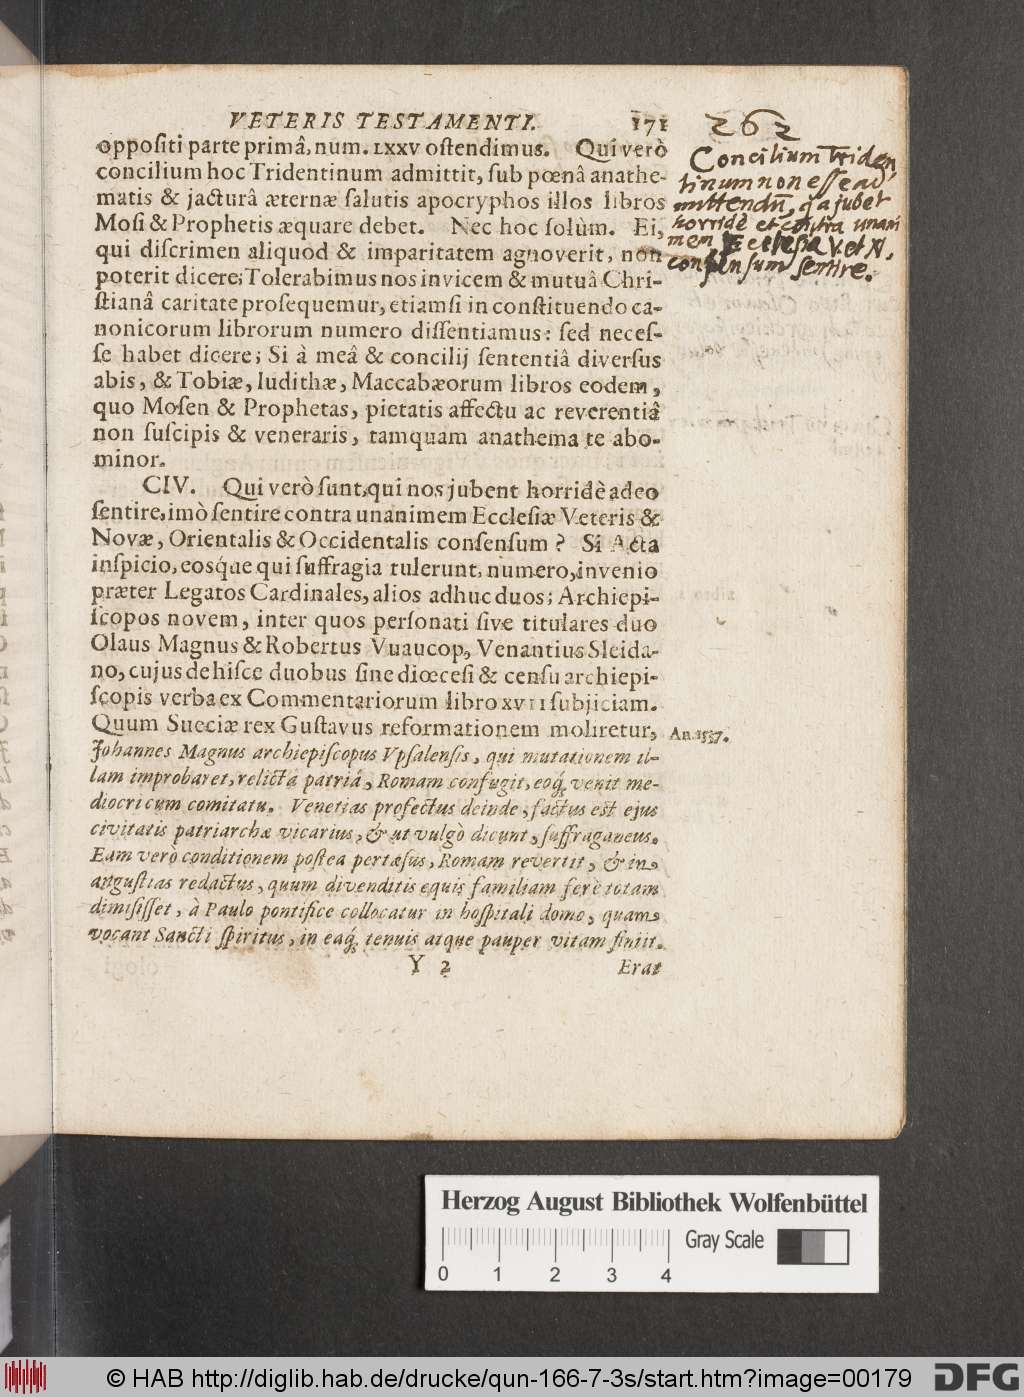 VETERIS TESTAMENTI. 171
262
oppositi parte primâ, num. LXXV ostendimus. Qui verò
concilium hoc Tridentinum admittit, sub pœnâ anathe-
matis & jacturâ æternæ salutis apocryphos illos libros
Mosi & Prophetis æquare debet. Nec hoc solùm. Ei,
qui discrimen aliquod & imparitatem agnoverit, non
poterit dicere; Tolerabimus nos invicem & mutuâ Chri-
stianâ caritate prosequemur, etiamsi in constituendo ca-
nonicorum librorum numero dissentiamus: sed neces-
se habet dicere; Si à meâ & concilij sententiâ diversus
abis, & Tobiæ, Iudithæ, Maccabæorum libros eodem,
quo Mosen & Prophetas, pietatis affectu ac reverentiâ
non suscipis & veneraris, tamquam anathema te abo-
minor.
Concilium Triden
tinum non esse ad
mittendū, qa jubet
horridè et contra unani
mem Ecclesiæ V. et N.
consensum sentire.
CIV. Qui verò sunt, qui nos jubent horridè adeo
sentire, imò sentire contra unanimem Ecclesiæ Veteris &
Novæ, Orientalis & Occidentalis consensum? Si Acta
inspicio, eosq́ue qui suffragia tulerunt, numero, invenio
præter Legatos Cardinales, alios adhuc duos; Archiepi-
scopos novem, inter quos personati sive titulares duo
Olaus Magnus & Robertus Vuaucop, Venantius Sleida-
no, cujus de hisce duobus sine diœcesi & censu archiepi-
scopis verba ex Commentariorum libro XVII subjiciam.
Quum Sueciæ rex Gustavus reformationem moliretur,
An. 1537.
Johannes Magnus archiepiscopus Vpsalensis, qui mutationem il-
lam improbaret, relictâ patriâ, Romam confugit, eoq́; venit me-
diocri cum comitatu. Venetias profectus deinde, factus est ejus
civitatis patriarchæ vicarius, & ut vulgò dicunt, suffraganeus.
Eam verò conditionem postea pertæsus, Romam revertit, & in
angustias redactus, quum divenditis equis familiam ferè totam
dimisisset, à Paulo pontifice collocatur in hospitali domo, quam
vocant Sancti spiritus, in eaq́; tenuis atque pauper vitam finiit.
Y 2 Erat
Herzog August Bibliothek Wolfenbüttel
Gray Scale
0 1 2 3 4
© HAB http://diglib.hab.de/drucke/qun-166-7-3s/start.htm?image=00179
DFG